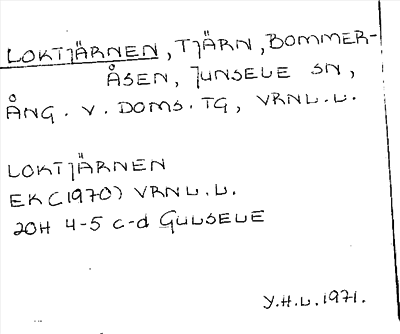 LOKTJÄRNEN, TJÄRN, BOMMER-
ÅSEN, JUNSELE SN,
ÅNG. V. DOMS. TG, VRNL. L.
LOKTJÄRNEN
EK (1970) VRNL. L.
20H 4-5 c-d GULSELE
Y.H.L. 1971.